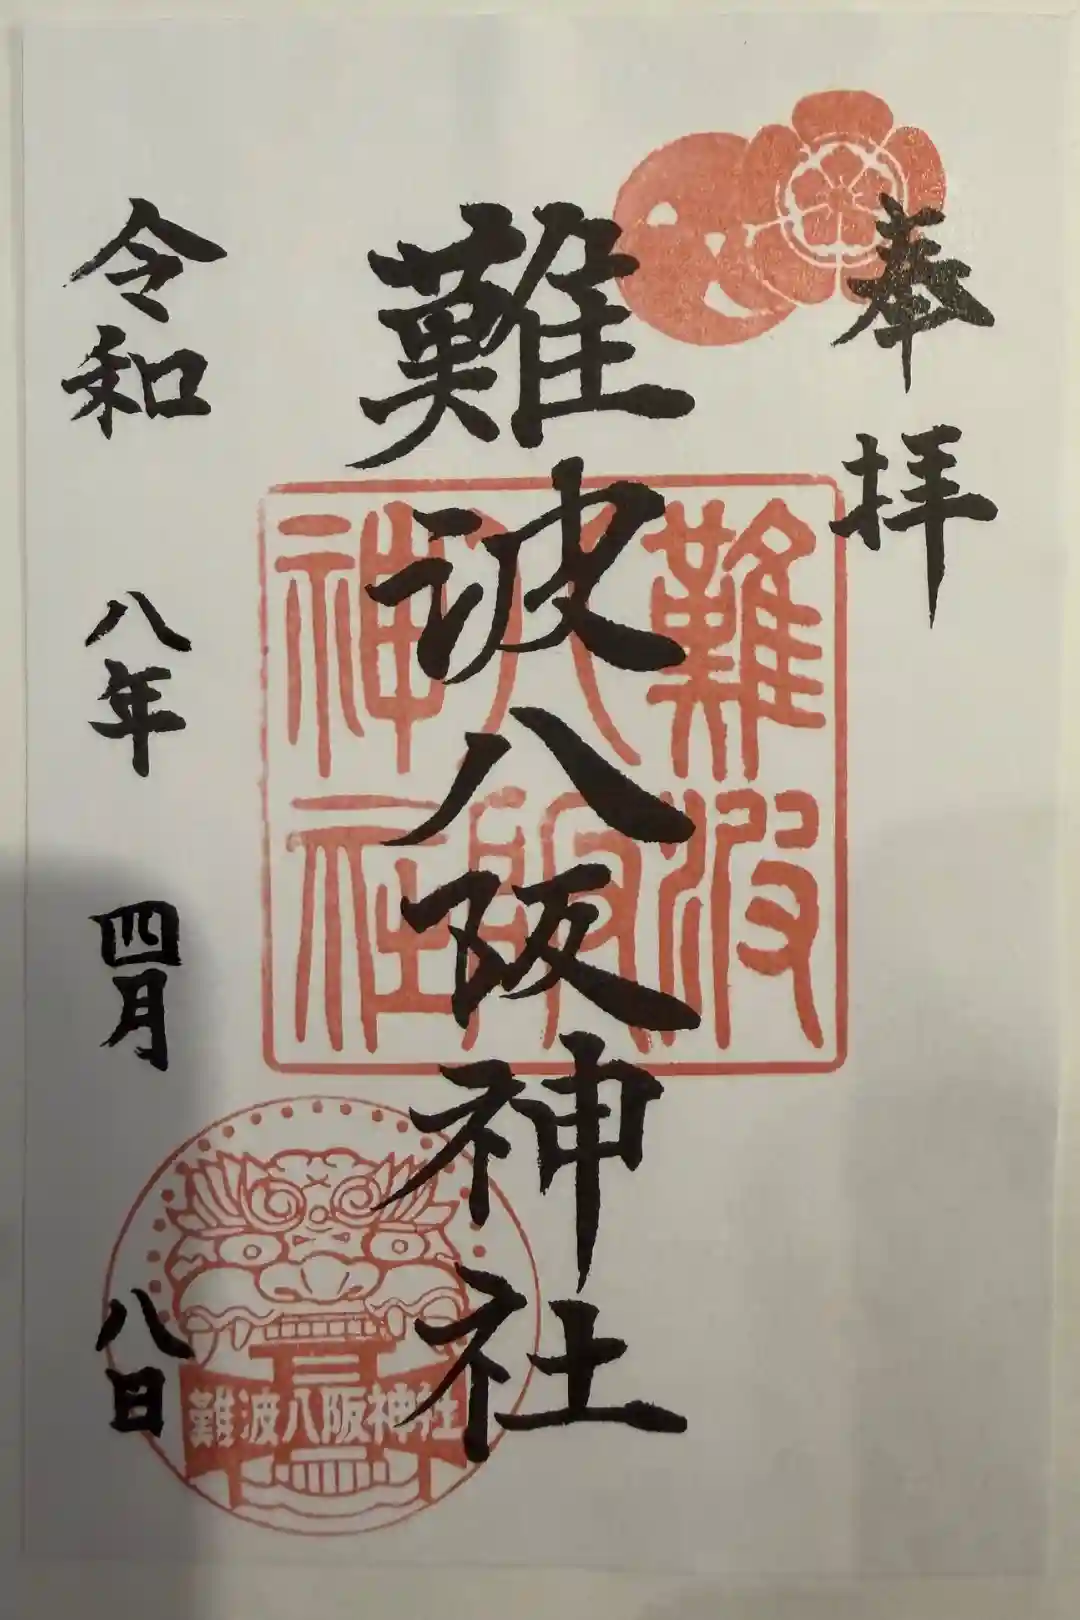 奉拝
難波八阪神社
難波
八阪
神社
令和八年四月八日
難波八阪神社